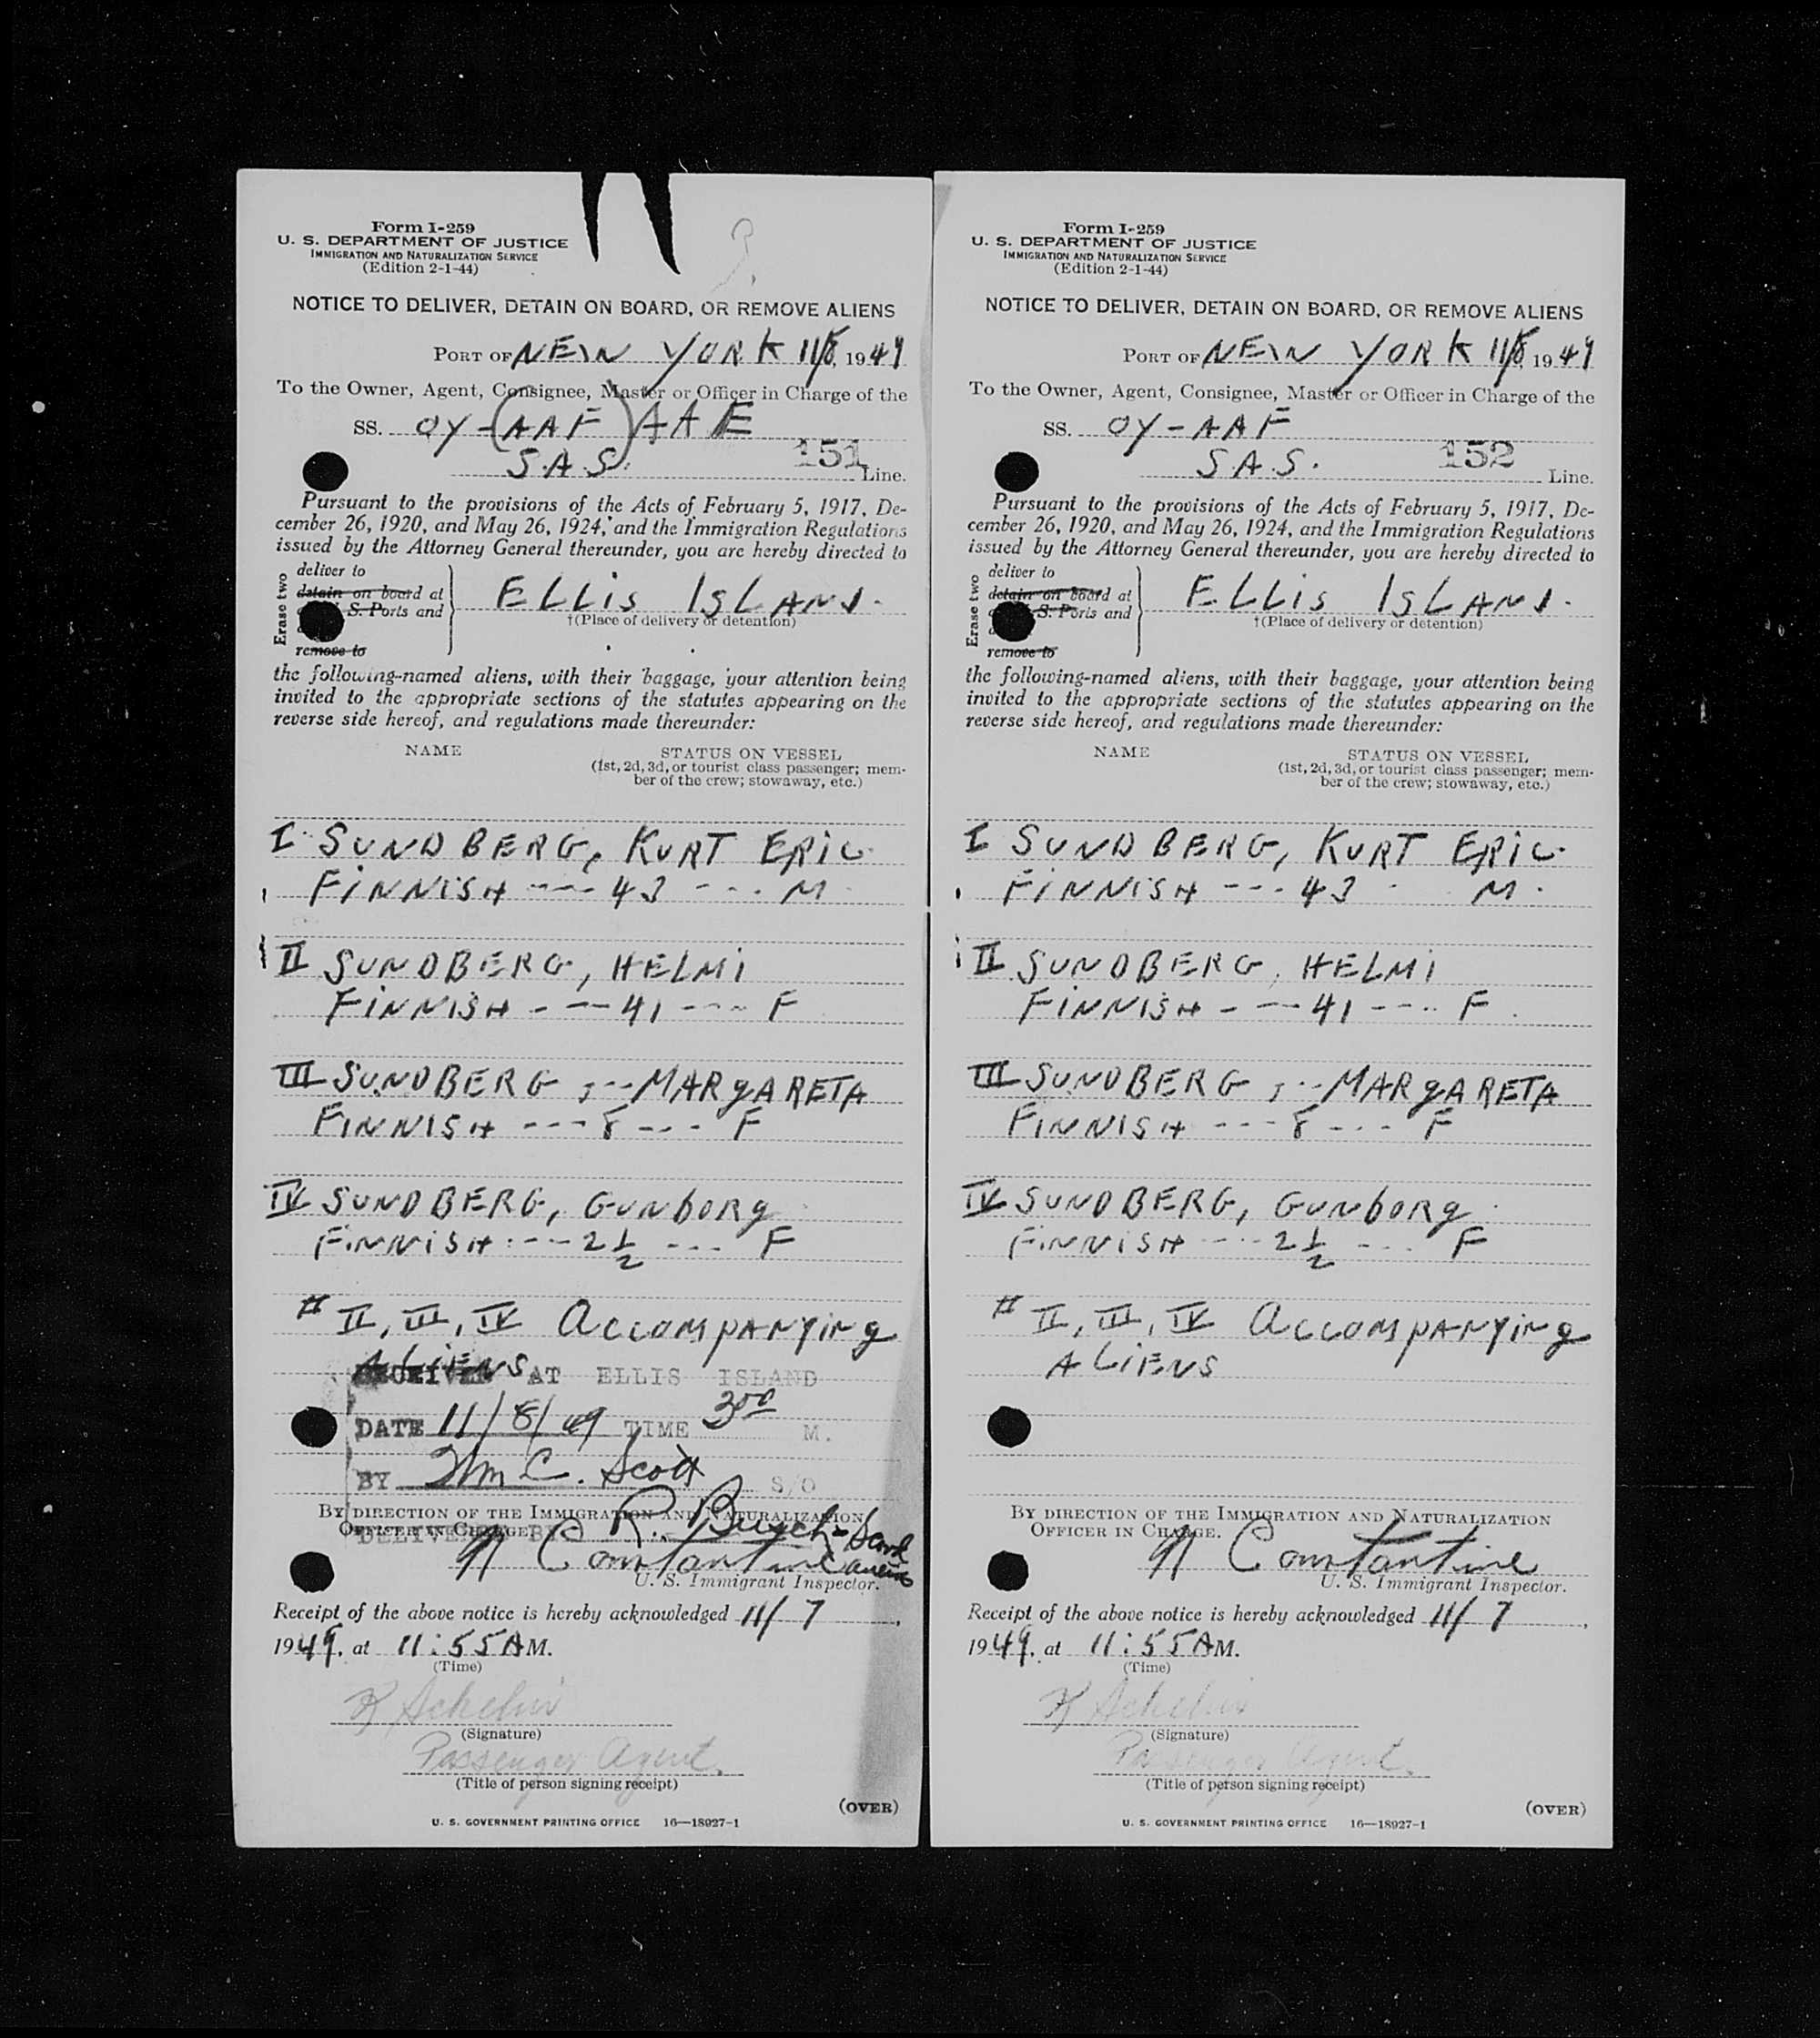 Form I-259
U. S. DEPARTMENT OF JUSTICE
IMMIGRATION AND NATURALIZATION SERVICE
(Edition 2-1-44)
NOTICE TO DELIVER, DETAIN ON BOARD, OR REMOVE ALIENS
PORT OF NEW YORK 11/8, 1949
To the Owner, Agent, Consignee, Master or Officer in Charge of the
SS. OY-(AAF) AAE
S.A.S. 151 Line.
Pursuant to the provisions of the Acts of February 5, 1917, De-
cember 26, 1920, and May 26, 1924, and the Immigration Regulations
issued by the Attorney General thereunder, you are hereby directed to
Erase two
deliver to
detain on board at
S. Ports and
remove to
ELLIS ISLAND.
†(Place of delivery or detention)
the following-named aliens, with their baggage, your attention being
invited to the appropriate sections of the statutes appearing on the
reverse side hereof, and regulations made thereunder:
NAME STATUS ON VESSEL
(1st, 2d, 3d, or tourist class passenger; mem-
ber of the crew; stowaway, etc.)
I SUNDBERG, KURT ERIC
FINNISH --- 43 --- M
II SUNDBERG, HELMI
FINNISH - -- 41 --- F
III SUNDBERG, -- MARgARETA
FINNISH --- 8 --- F
IV SUNDBERG, GUNbORg
FINNISH --- 2 1/2 --- F
# II, III, IV ACCOMPANYING
ALIENS
RECEIVED AT ELLIS ISLAND
DATE 11/8/49 TIME 3 00 M.
BY Wm C. Scott S/O
BY DIRECTION OF THE IMMIGRATION AND NATURALIZATION
OFFICER IN CHARGE.
DELIVERED BY R.
N Constantine
U. S. Immigrant Inspector.
Receipt of the above notice is hereby acknowledged 11/7,
1949, at 11:55 AM.
(Time)
(Signature)
Passenger Agent.
(Title of person signing receipt)
(OVER)
U. S. GOVERNMENT PRINTING OFFICE 16—18927-1
Form I-259
U. S. DEPARTMENT OF JUSTICE
IMMIGRATION AND NATURALIZATION SERVICE
(Edition 2-1-44)
NOTICE TO DELIVER, DETAIN ON BOARD, OR REMOVE ALIENS
PORT OF NEW YORK 11/8, 1949
To the Owner, Agent, Consignee, Master or Officer in Charge of the
SS. OY-AAF
S.A.S. 152 Line.
Pursuant to the provisions of the Acts of February 5, 1917, De-
cember 26, 1920, and May 26, 1924, and the Immigration Regulations
issued by the Attorney General thereunder, you are hereby directed to
Erase two
deliver to
detain on board at
S. Ports and
remove to
ELLIS ISLAND.
†(Place of delivery or detention)
the following-named aliens, with their baggage, your attention being
invited to the appropriate sections of the statutes appearing on the
reverse side hereof, and regulations made thereunder:
NAME STATUS ON VESSEL
(1st, 2d, 3d, or tourist class passenger; mem-
ber of the crew; stowaway, etc.)
I SUNDBERG, KURT ERIC
FINNISH --- 43 - M.
II SUNDBERG, HELMI
FINNISH - -- 41 --- F
III SUNDBERG, -- MARgARETA
FINNISH --- 8 --- F
IV SUNDBERG, GUNbORg
FINNISH --- 2 1/2 --- F
# II, III, IV ACCOMPANYING
ALIENS
BY DIRECTION OF THE IMMIGRATION AND NATURALIZATION
OFFICER IN CHARGE.
N Constantine
U. S. Immigrant Inspector.
Receipt of the above notice is hereby acknowledged 11/7,
1949, at 11:55 AM.
(Time)
(Signature)
Passenger Agent.
(Title of person signing receipt)
(OVER)
U. S. GOVERNMENT PRINTING OFFICE 16—18927-1